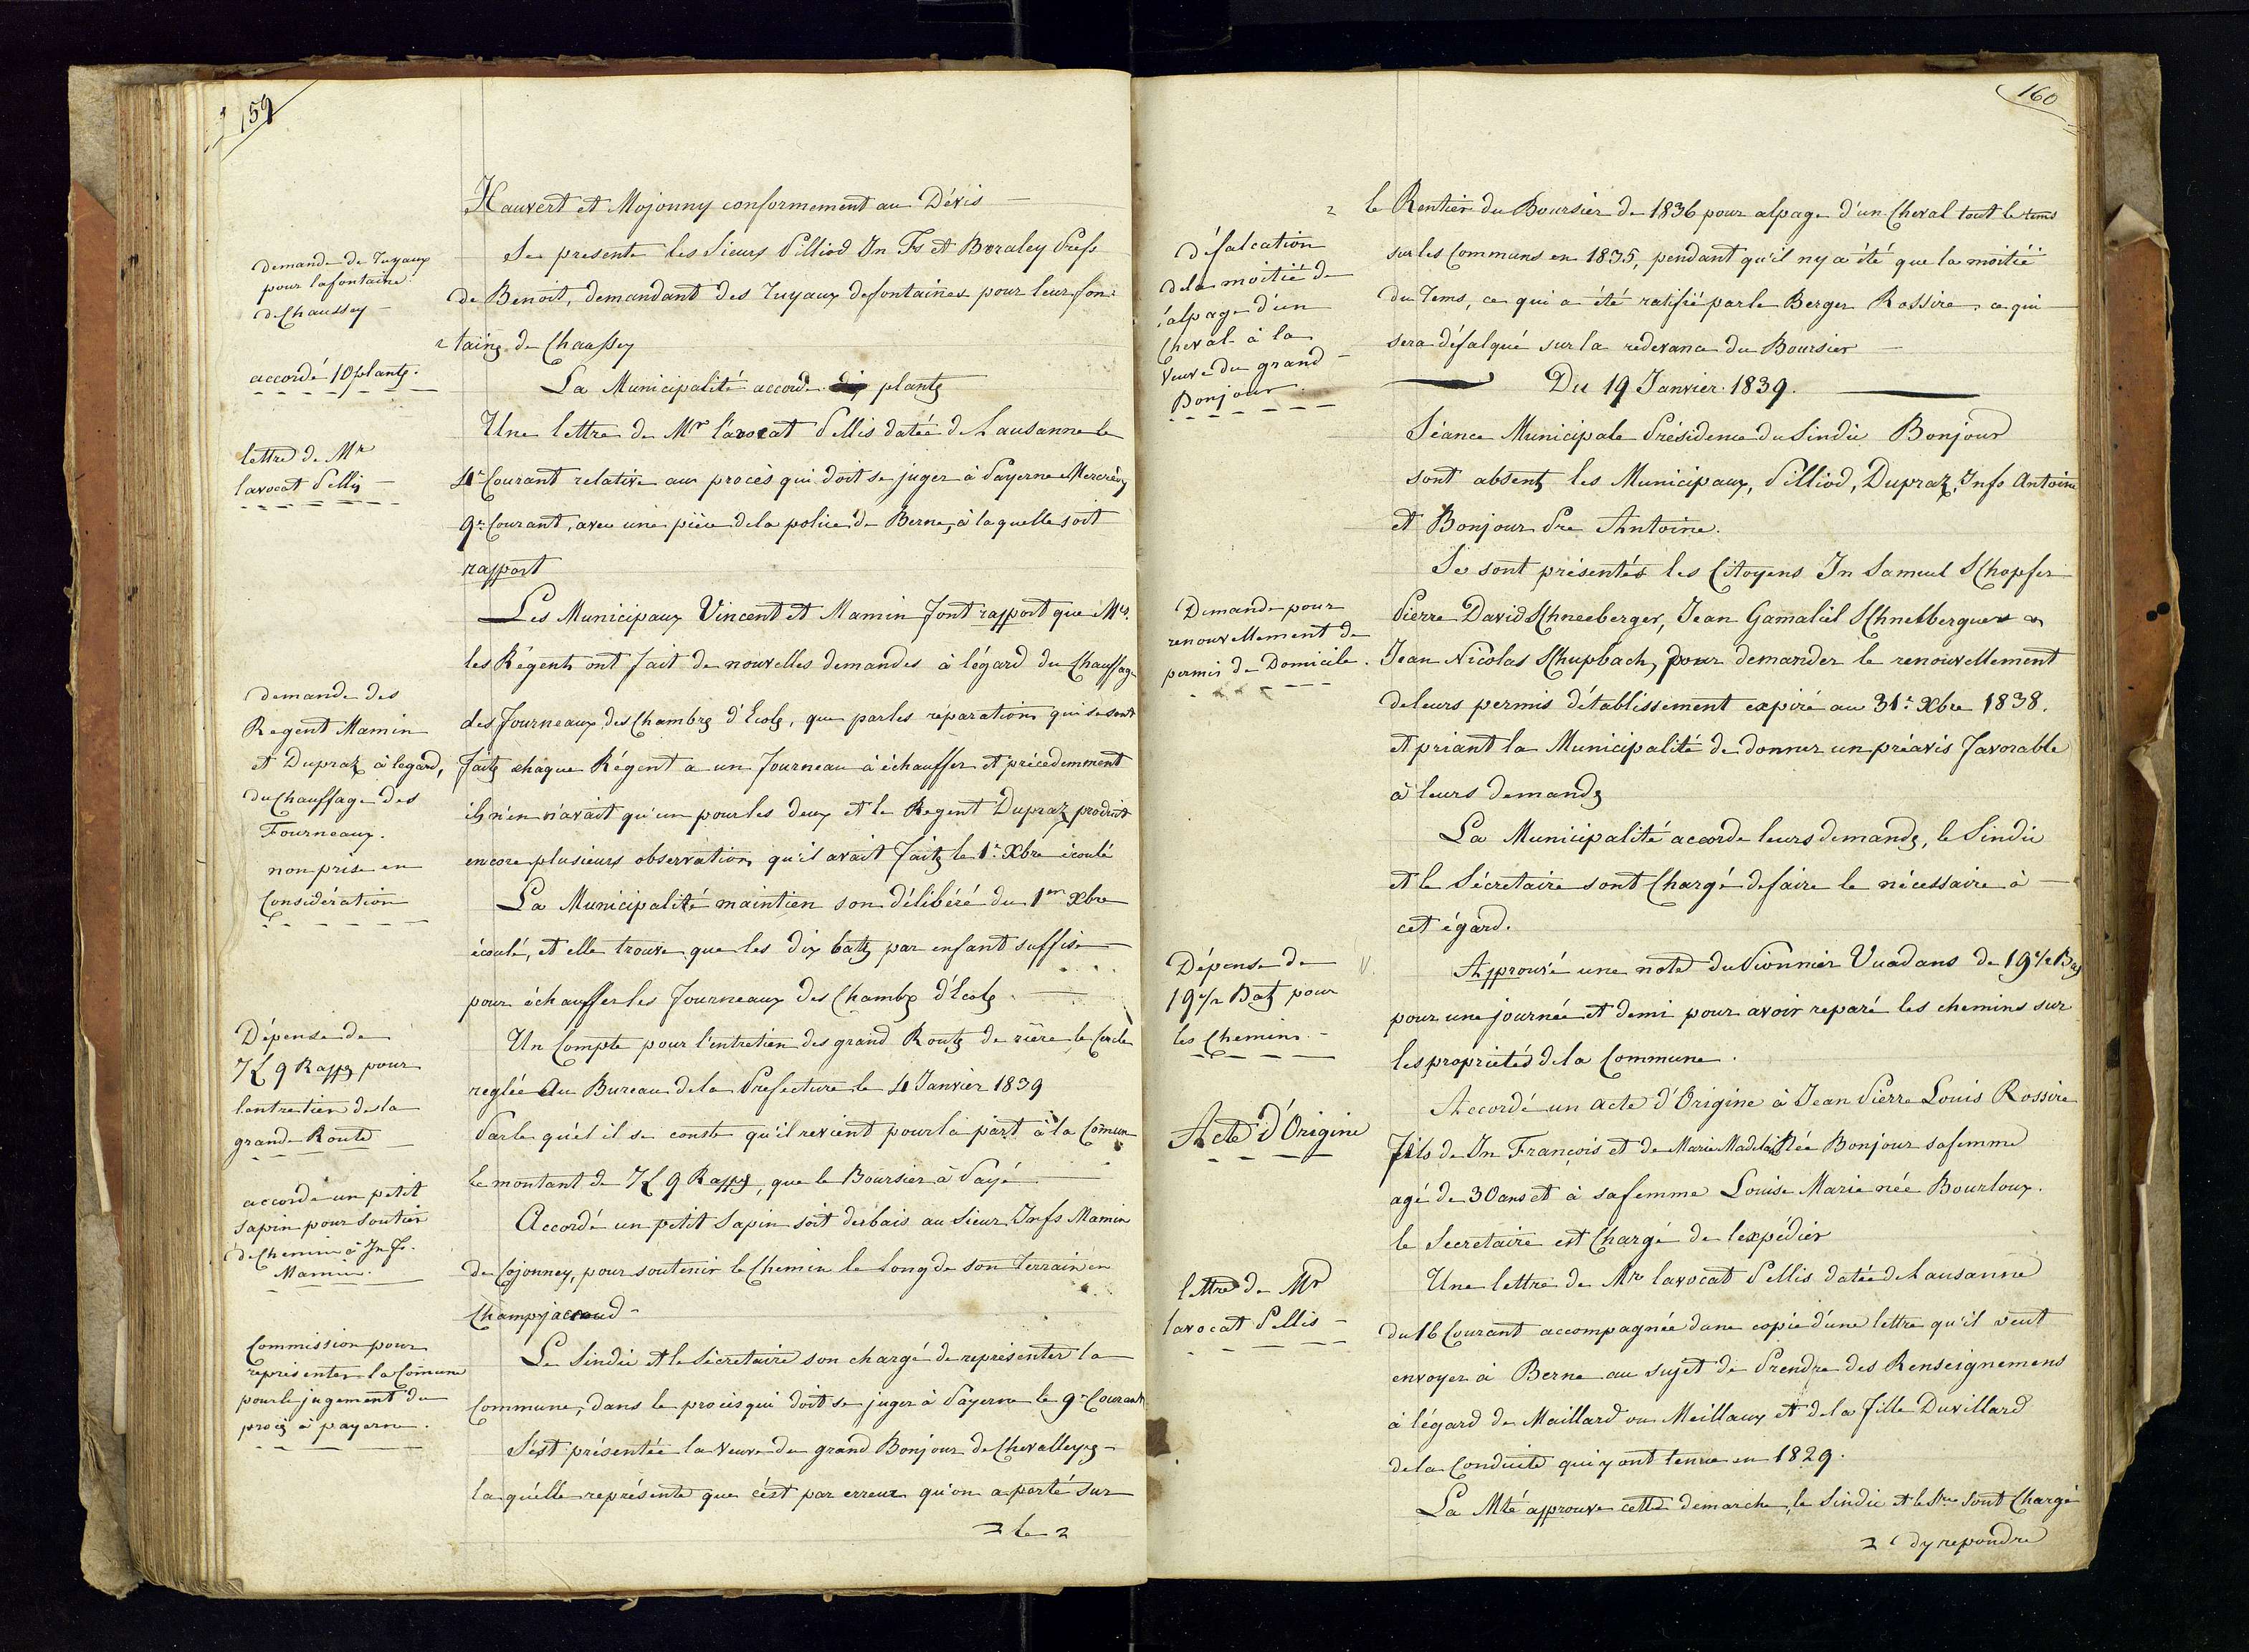 159
Hauvert et Mojonny conformement au Dévis —
demande de Tuyaux
pour lafontaine
de Chaussey —
Se presente les Sieurs Pilliod Jn Fs et Buraley
de Benoit, demandant des Tuyaux defontaines pour leur fon-
taine de Chaussey
accordé 10 plants.
La Municipalité accorde dix plants
lettre de Mr
lavocat Pellis —
Une lettre de Mr l'avocat Pellis datée de Lausanne le
4e Courant relative au procès qui doit se juger à Payerne Mercredy
9e Courant, avec une pièce dela police de Berne, à laquelle soit
rapport
demande des
Regent Mamin
et Dupraz à legard,
du Chauffage des
Fourneaux.
non prise en
Considération
Les Municipaux Vincent et Mamin font rapport que Mrs.
les Régents ont fait de nouvelles demandes à légard du Chauffage
des fourneaux des Chambres d'Ecole, que parles réparations qui se sont
faites chaque Régent a un fourneau à échauffer et précédemment
ils n'en n'avait qu'un pour les deux et le Regent Dupraz produit
encore plusieurs observations qu'il avait faites le 1er Xbre écoulé
La Municipalité maintien son délibéré du 1er Xbre
écoulé, et elle trouve que les dix batz par enfant suffise
pour échauffer les fourneaux des Chambres d'Ecole. —
Dépense de
7 L 9 Rapps pour
lentretien dela
grande Route
Un Compte pour l'entretien des grand Routes de rière le Cercle
reglée Au Bureau dela Prefecture le 4 Janvier 1839
Par le quel il se conste qu'il revient pour la part à la Comune
le montant de 7 L 9 Rapps, que le Boursier à Payé —
accordé un petit
sapin pour soutien
de Chemin à Jn Fs.
Mamin.
Accordé un petit Sapin soit desbais au Sieur Jnfs Mamin
de Cojonney, pour soutenir le Chemin le Long de son Terrain en
Champjaccaud —
Commission pour
représenter la Comune
pour le jugement du
procès à payerne.
Le Sindic et le Sécretaire son chargé de représenter la
Commune, dans le procès qui doit se juger à Payerne le 9e Courant
S'est présentée la veuve du grand Bonjour de Chevalleyres —
la quelle représente que c'est par erreur qu'on a porté sur
le
160
défalcation
dela moitié de
l'alpage d'un
Cheval à la
Veuve du grand
Bonjour.
le Rentier du Boursier de 1836 pour alpage d'un Cheval tout le tems
sur les Communs en 1835, pendant qu'il ny a été que la moitié
du Tems, ce qui a été ratifié par le Berger Rossire, ce qui
sera défalqué sur la redevance du Boursier —
Du 19 Janvier 1839.
Séance Municipale Présidence du Sindic Bonjour
sont absents les Municipaux, Pilliod, Dupraz, Jnfs Antoine
et Bonjour Pre Antoine.
Demande pour
renouvellement de
permis de Domicile.
Se sont présentés les Citoyens Jn Samuel SChopfer
Pierre David SChneeberger, Jean Gamaliel SChnetberguer &
Jean Nicolas SChupbach, pour demander le renouvellement
de leurs permis d'établissement expiré au 31e Xbre 1838.
et priant la Municipalité de donner un préavis favorable
à leurs demandes
La Municipalité accorde leurs demandes, le Sindic
et le Sécretaire sont Chargé de faire le nécessaire à —
cet égard.
Dépense de
19 1/2 Batz pour
les Chemins —
Approuvé une note du Pionnier Vuadans de 19 1/2 Bz
pour une journée et demi pour avoir reparé les chemins sur
les proprietés dela Commune.
Acte d'Origine
Accordé un acte d'Origine à Jean Pierre Louis Rossire
fils de Jn François et de Marie Madelaine Née Bonjour sa femme
agé de 30 ans et à sa femme Louise Marie née Bourloux.
le Secretaire est Chargé de l'expédier
lettre de Mr
lavocat Pellis —
Une lettre de Mr lavocat Pellis datée de Lausanne
du 16 Courant accompagnée dune copie d'une lettre qu'il veut
envoyer à Berne au sujet de Prendre des Renseignemens
à légard de Maillard ou Meillaux et dela fille Duvillard
dela Conduite qui y ont tenue en 1829.
La Mté approuve cette demarche, le Sindic et le Sre sont Chargé
dy repondre